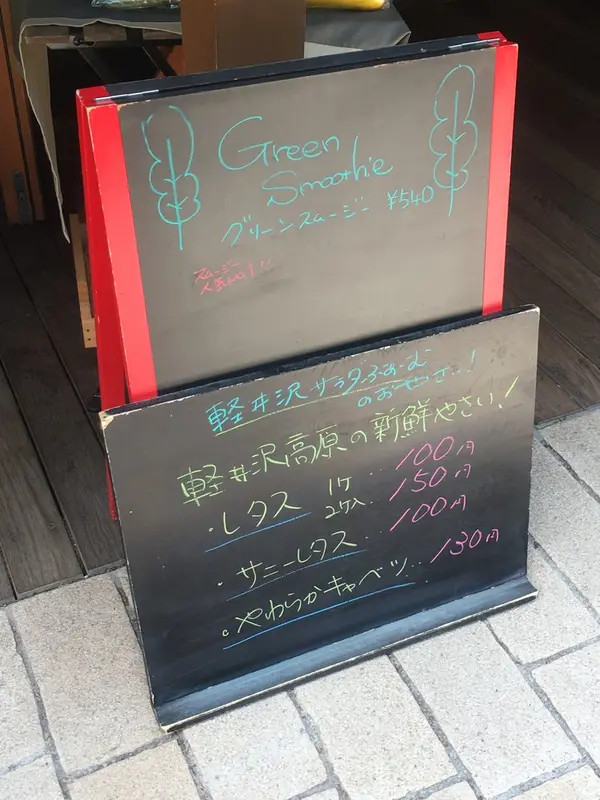 Green
Smoothie
グリーンスムージー ¥540
スムージー
人気No.1!!
軽井沢サラダふぁーむ
のおやさい!
軽井沢高原の新鮮やさい!
・レタス 1ケ...100円
2ケ入.150円
・サニーレタス...100円
・やわらかキャベツ...130円